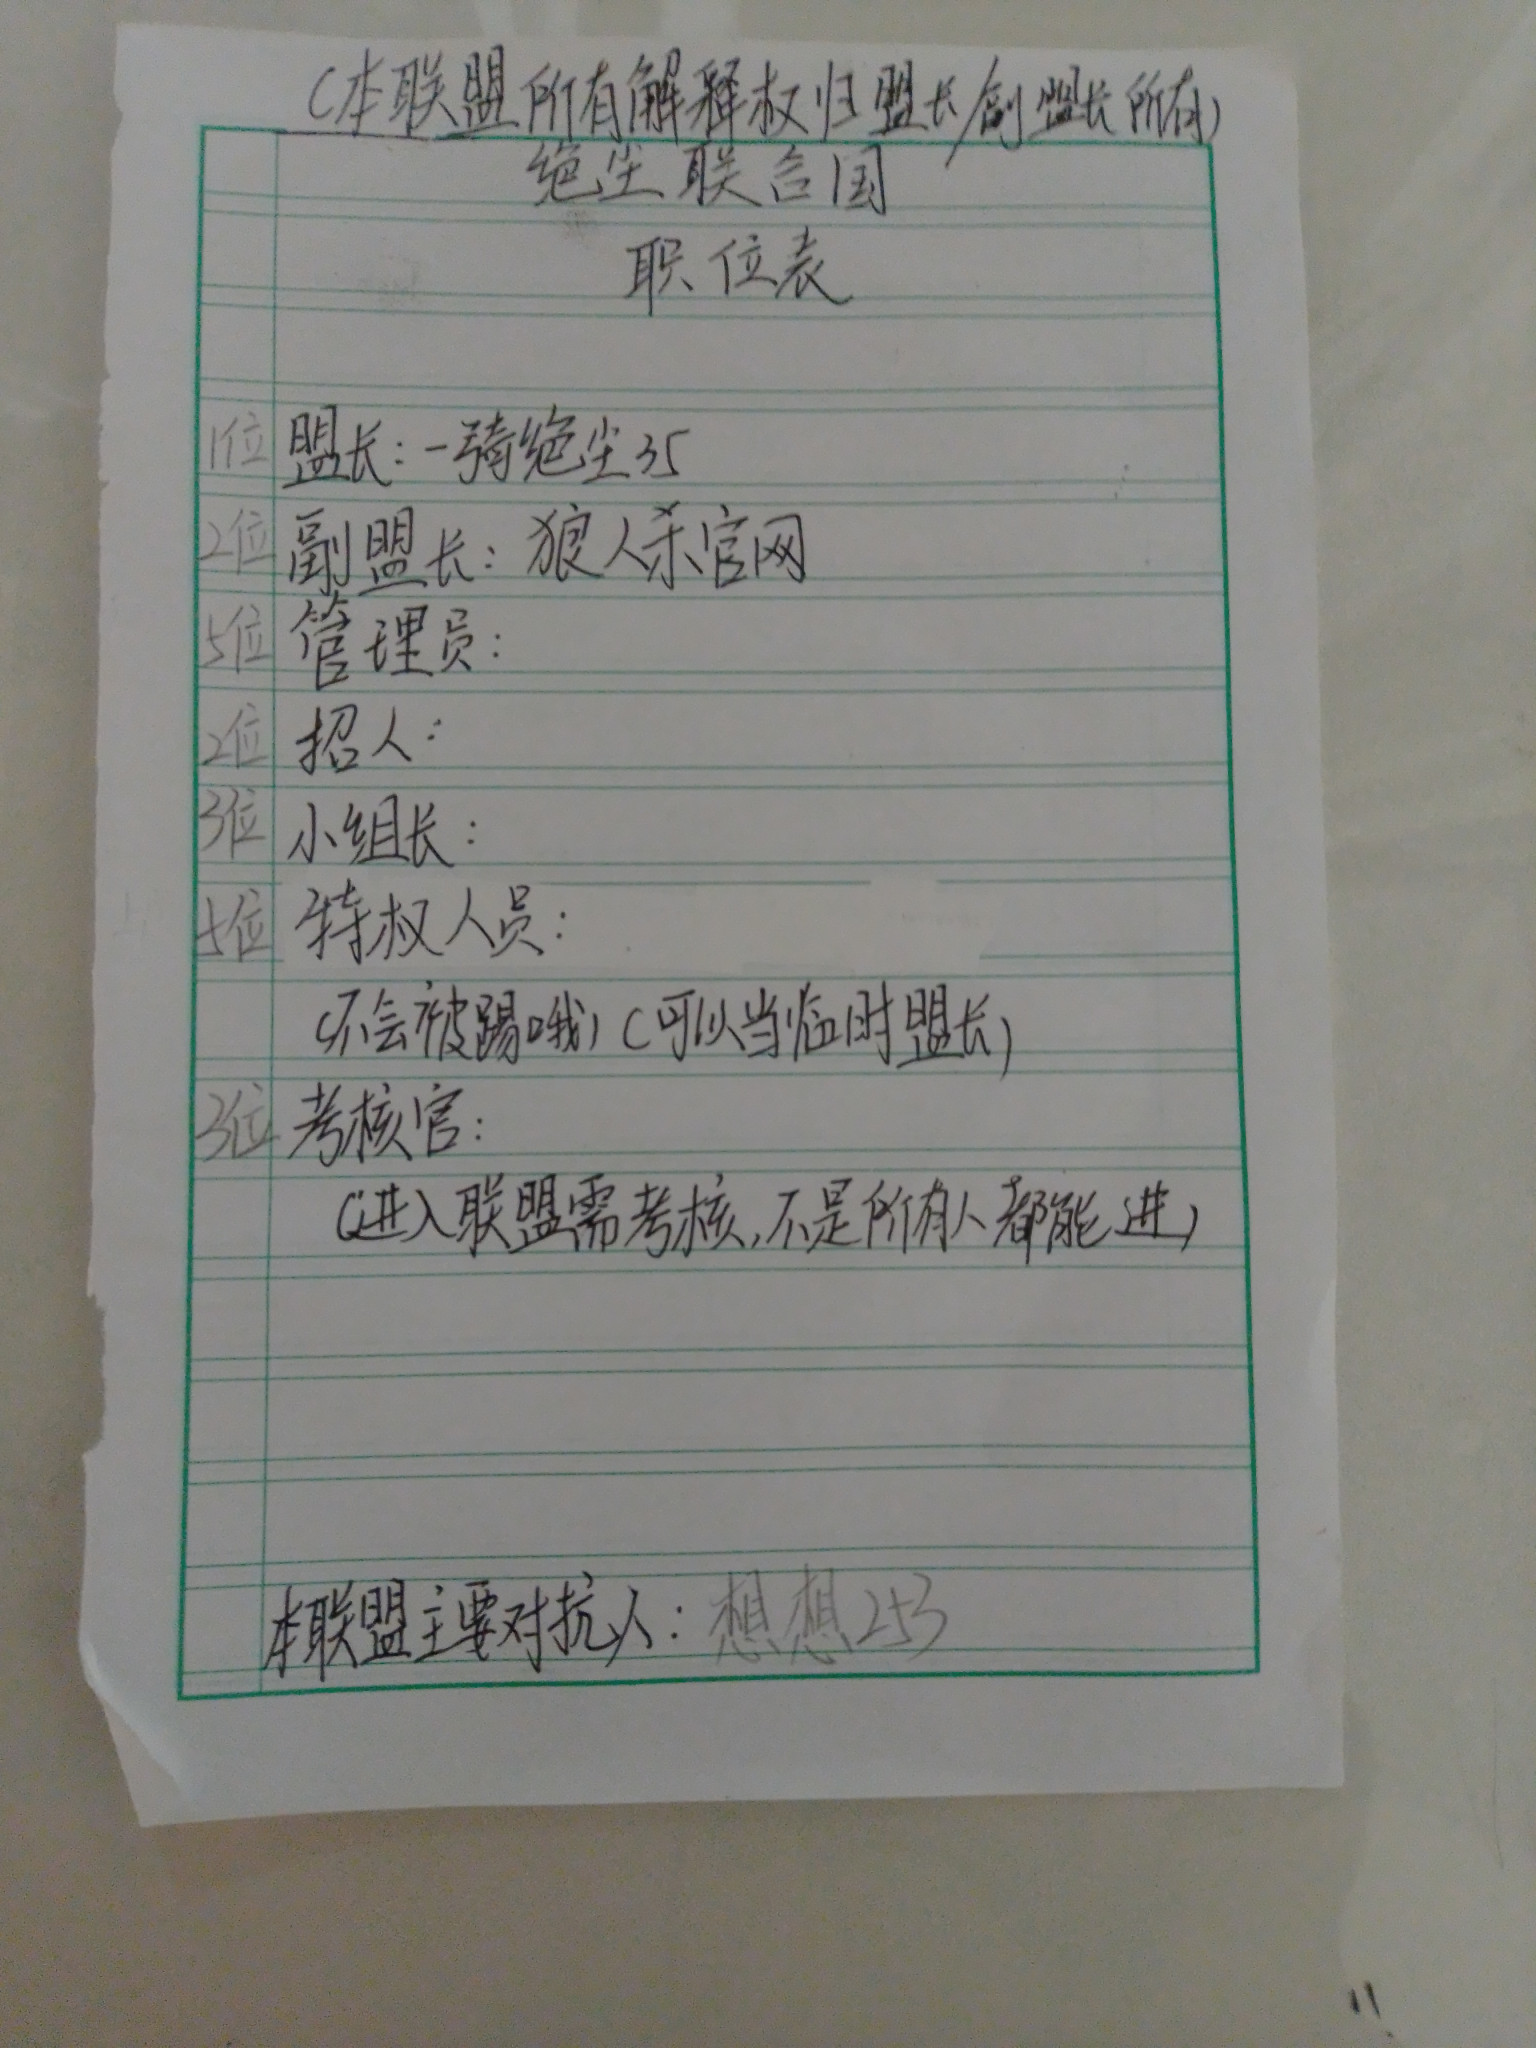 (本联盟所有解释权归盟长/副盟长所有)
绝尘联合国
职位表
1位 盟长:一骑绝尘35
2位 副盟长:狼人杀官网
5位 管理员:
2位 招人:
3位 小组长:
5位 特权人员:
(不会被踢哦)(可以当临时盟长)
3位 考核官:
(进入联盟需考核,不是所有人都能进)
本联盟主要对抗人:想想253